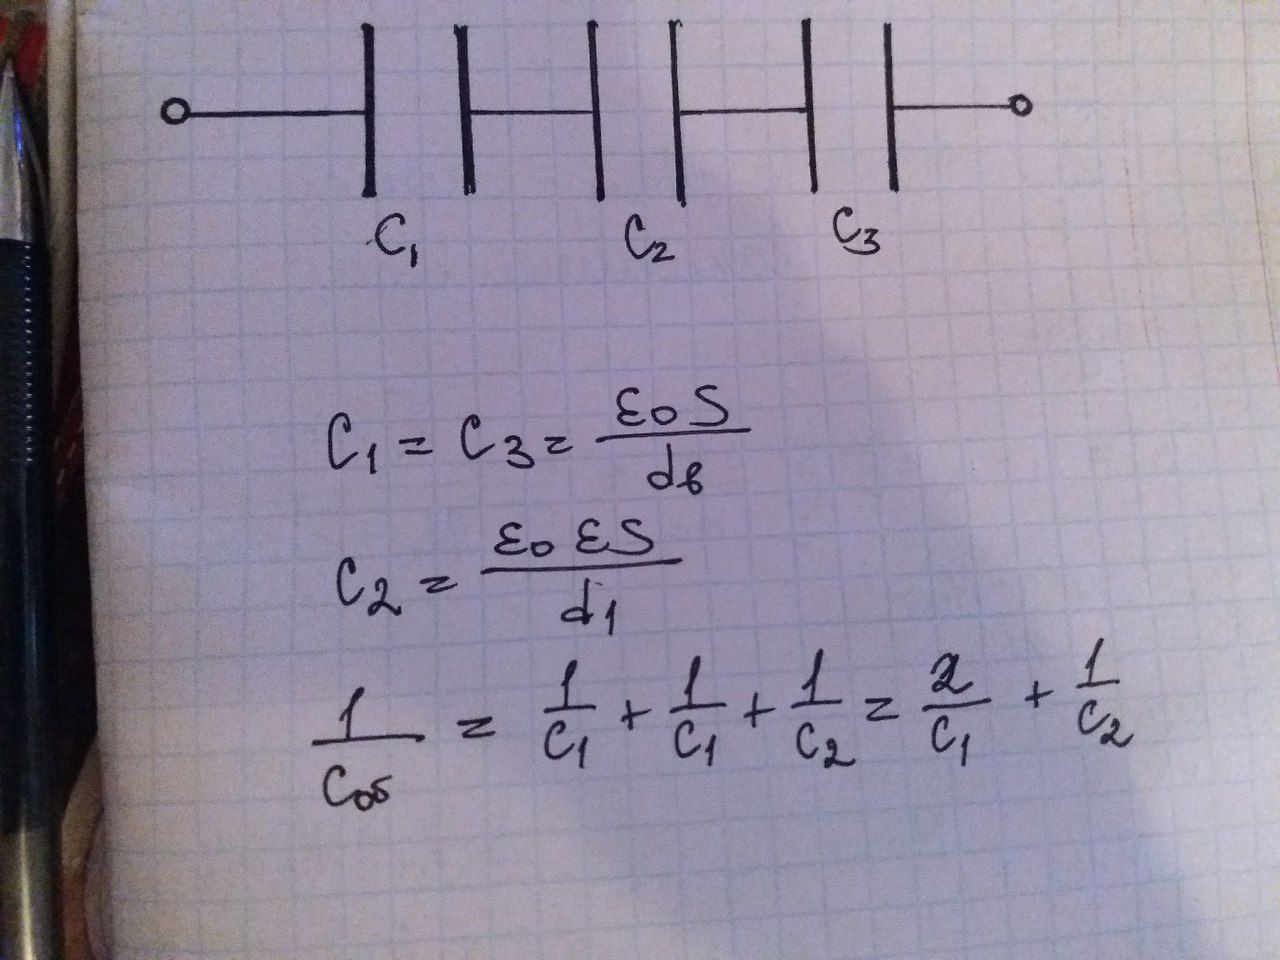 C₁ C₂ C₃
C₁ = C₃ = ε₀S / dв
C₂ = ε₀εS / d₁
1/Cоб = 1/C₁ + 1/C₁ + 1/C₂ = 2/C₁ + 1/C₂